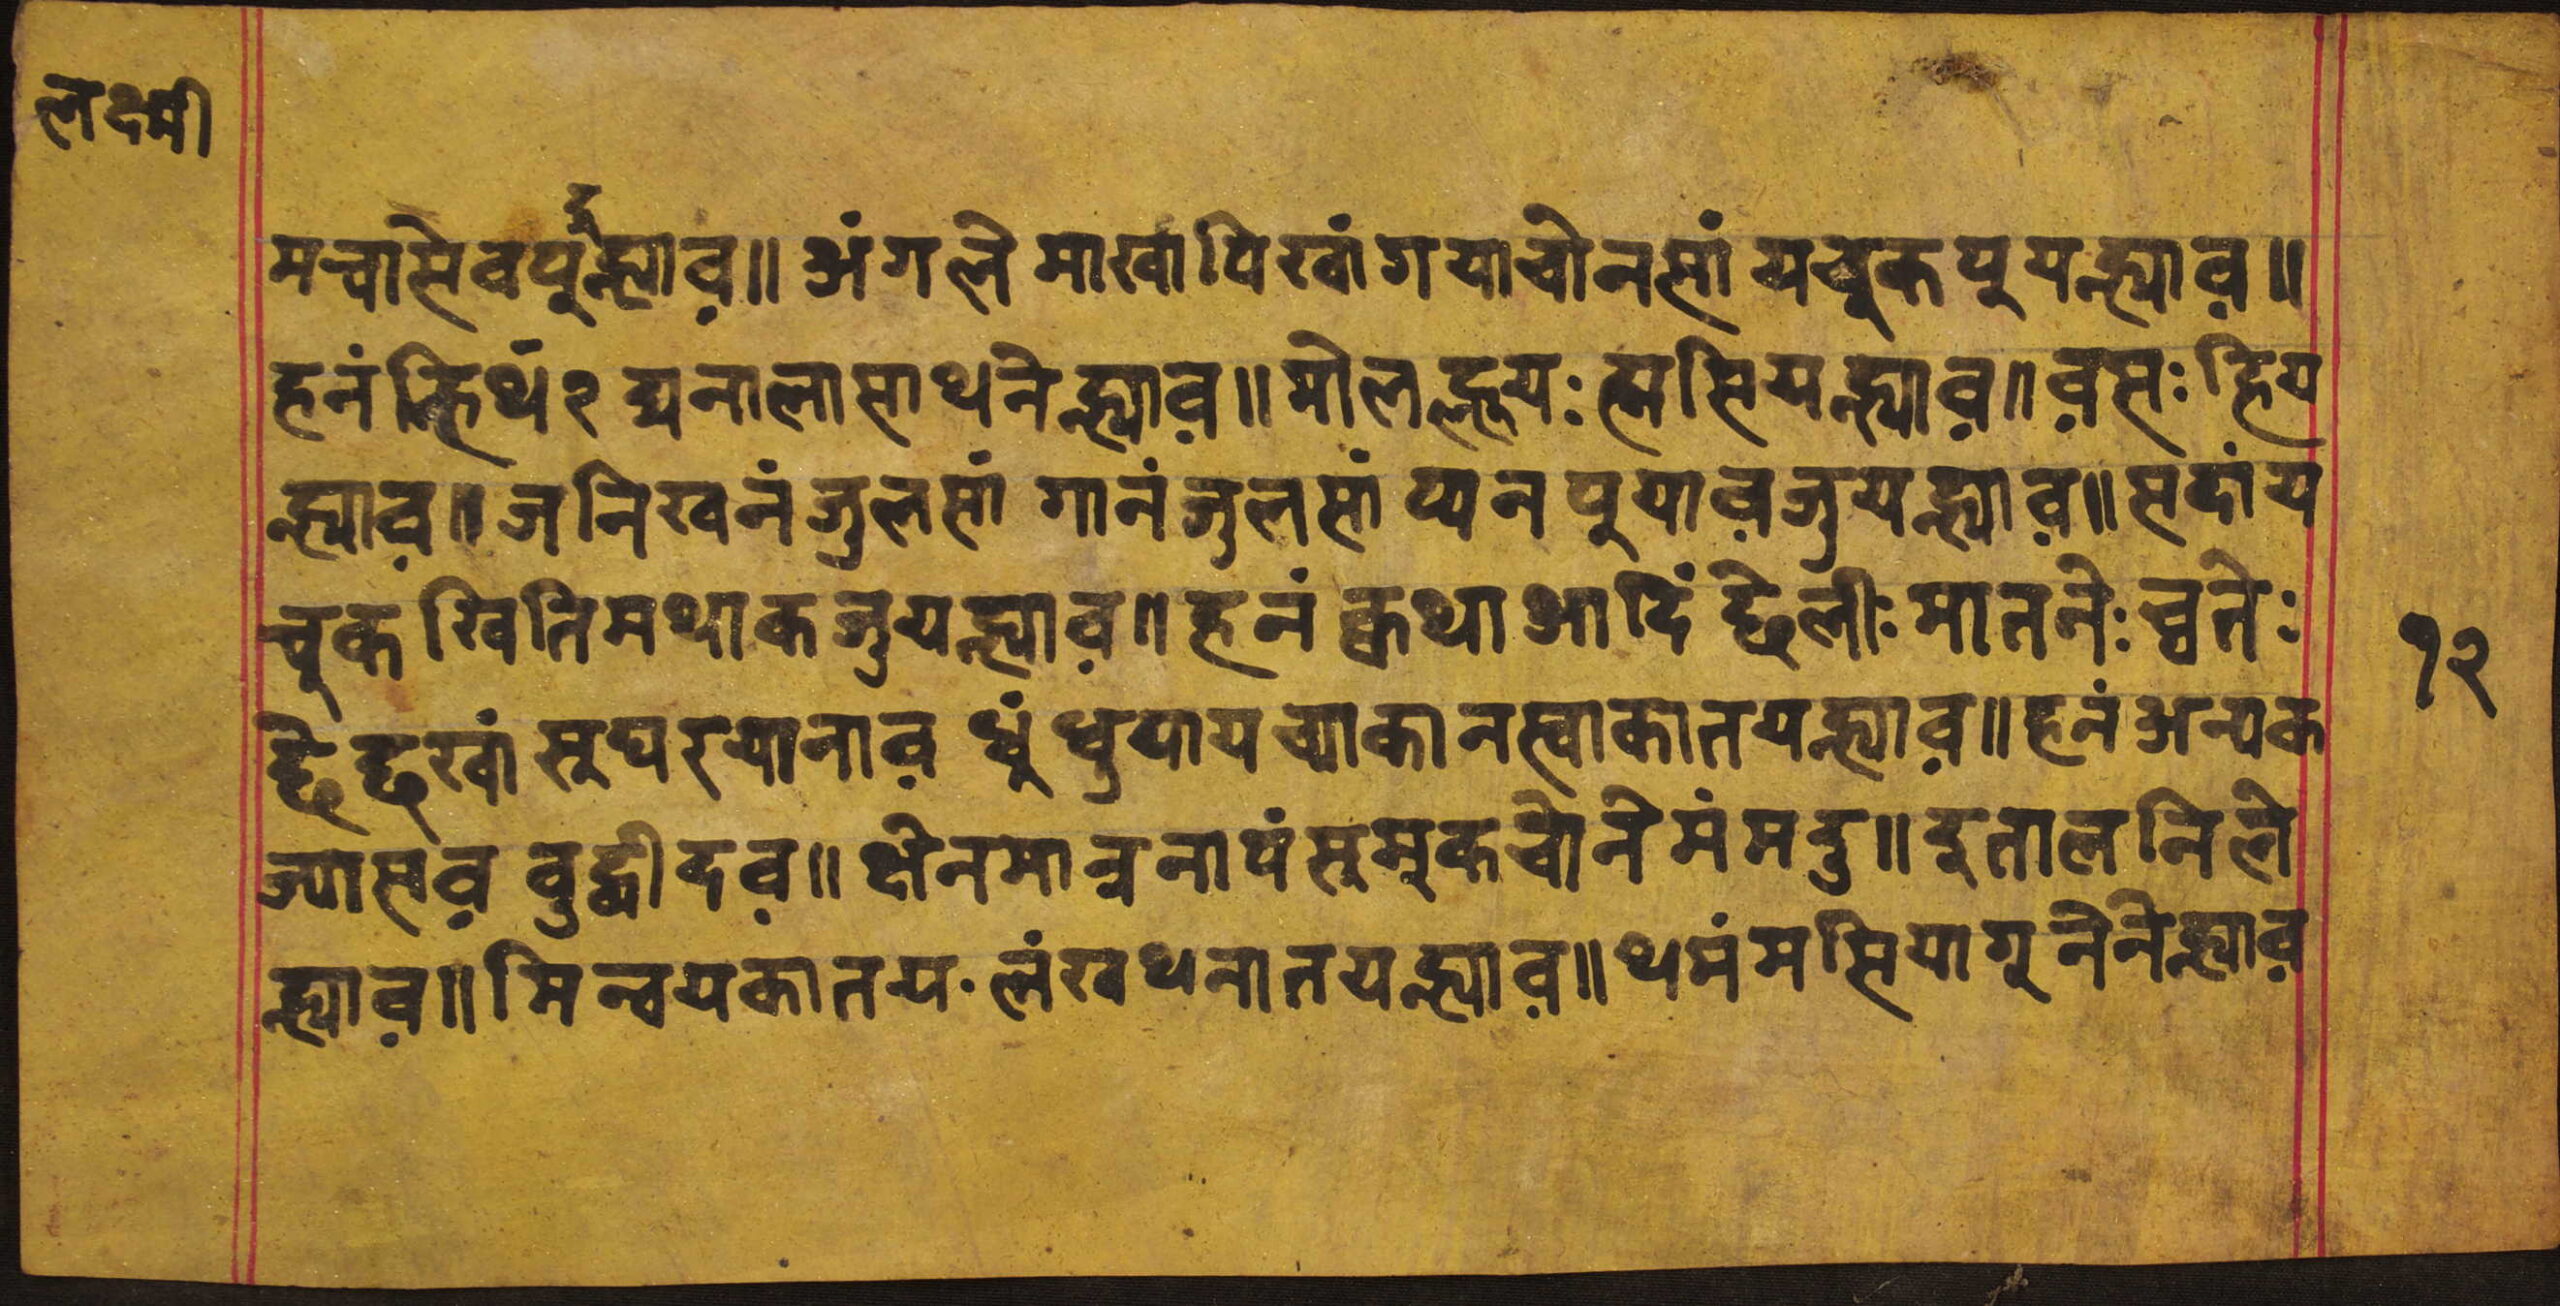 लक्ष्मी
मच्वासे वपुइह्माव़॥ अंगले माखां पिखां गयाचोनसां यचुक पुयह्माव़॥
हनं न्हिथं २ द्यनालासा थनेह्माव़॥ मोलह्लुयः ह्मसियह्माव़॥ व़सः हिय
ह्माव़॥ जनिखनं जुलसां गानं जुलसां प्यन पुयाव़ जुयह्माव़॥ सदां य
चुक खितिमथाक जुयह्माव़॥ हनं क्वथा आदिं छेलीः मातनेः च्वतेः
छे छखां सुघरयानाव़ धुं धुयाय च्याकानस्वाकातयह्माव़॥ हनं अन्यक
ज्यासव़ वुद्धीदव़॥ क्षेनमात्रनापं सुमुक चोनेमं मदु॥ दुतालनिले
ह्माव़॥ मिन्चयकातय. लंख थनातयह्माव़॥ थमं मसियागु नेनेह्माव़
१२